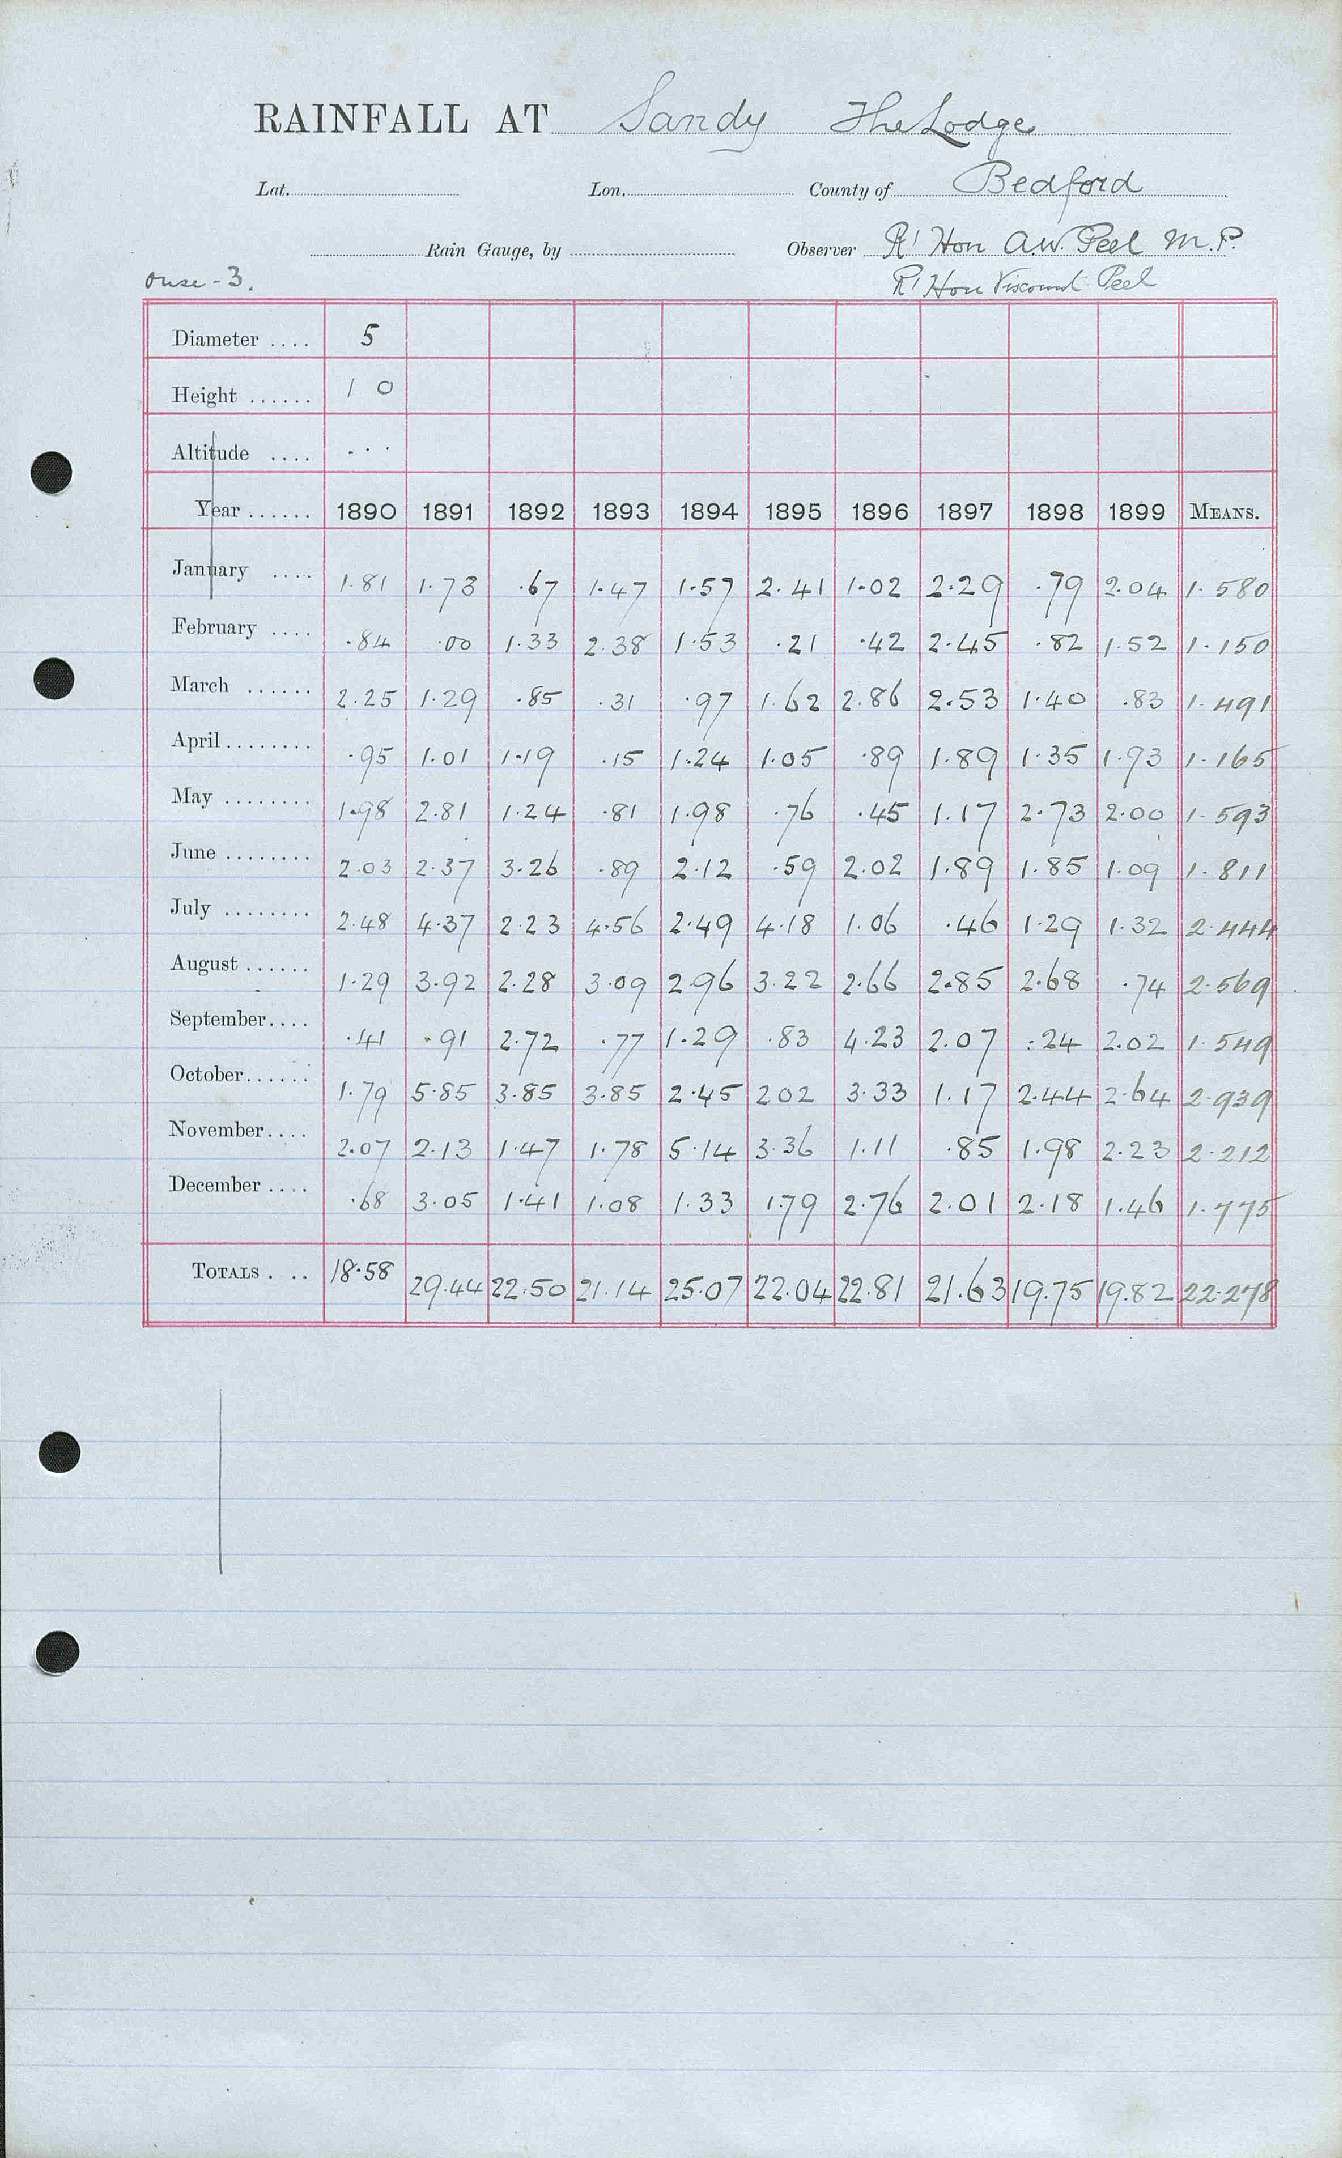 RAINFALL AT Sandy The Lodge
Lat. Lon. County of Bedford
Rain Gauge, by Observer Rt Hon A.W. Peel M.P.
Ouse - 3. Rt Hon Viscount Peel
Diameter .... 5
Height ...... 1 0
Altitude .... . . .
Year ...... 1890 1891 1892 1893 1894 1895 1896 1897 1898 1899 MEANS.
January .... 1.81 1.73 .67 1.47 1.57 2.41 1.02 2.29 .79 2.04 1.580
February .... .84 .00 1.33 2.38 1.53 .21 .42 2.45 .82 1.52 1.150
March ...... 2.25 1.29 .85 .31 .97 1.62 2.86 2.53 1.40 .83 1.491
April ........ .95 1.01 1.19 .15 1.24 1.05 .89 1.89 1.35 1.93 1.165
May ........ 1.98 2.81 1.24 .81 1.98 .76 .45 1.17 2.73 2.00 1.593
June ........ 2.03 2.37 3.26 .89 2.12 .59 2.02 1.89 1.85 1.09 1.811
July ........ 2.48 4.37 2.23 4.56 2.49 4.18 1.06 .46 1.29 1.32 2.444
August ...... 1.29 3.92 2.28 3.09 2.96 3.22 2.66 2.85 2.68 .74 2.569
September.... .41 .91 2.72 .77 1.29 .83 4.23 2.07 .24 2.02 1.549
October...... 1.79 5.85 3.85 3.85 2.45 2.02 3.33 1.17 2.44 2.64 2.939
November.... 2.07 2.13 1.47 1.78 5.14 3.36 1.11 .85 1.98 2.23 2.212
December .... .68 3.05 1.41 1.08 1.33 1.79 2.76 2.01 2.18 1.46 1.775
TOTALS .... 18.58 29.44 22.50 21.14 25.07 22.04 22.81 21.63 19.75 19.82 22.278